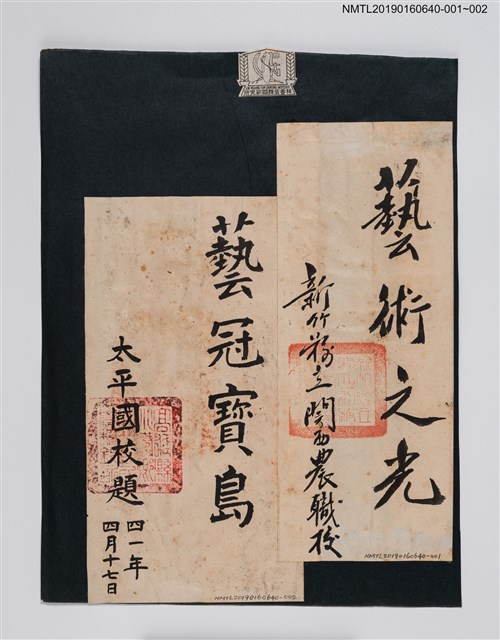 NMTL20190160640-001~002
藝術之光
新竹縣立關西農職校
NMTL20190160640-001
藝冠寶島
太平國校題
四一年
四月十七日
NMTL20190160640-002